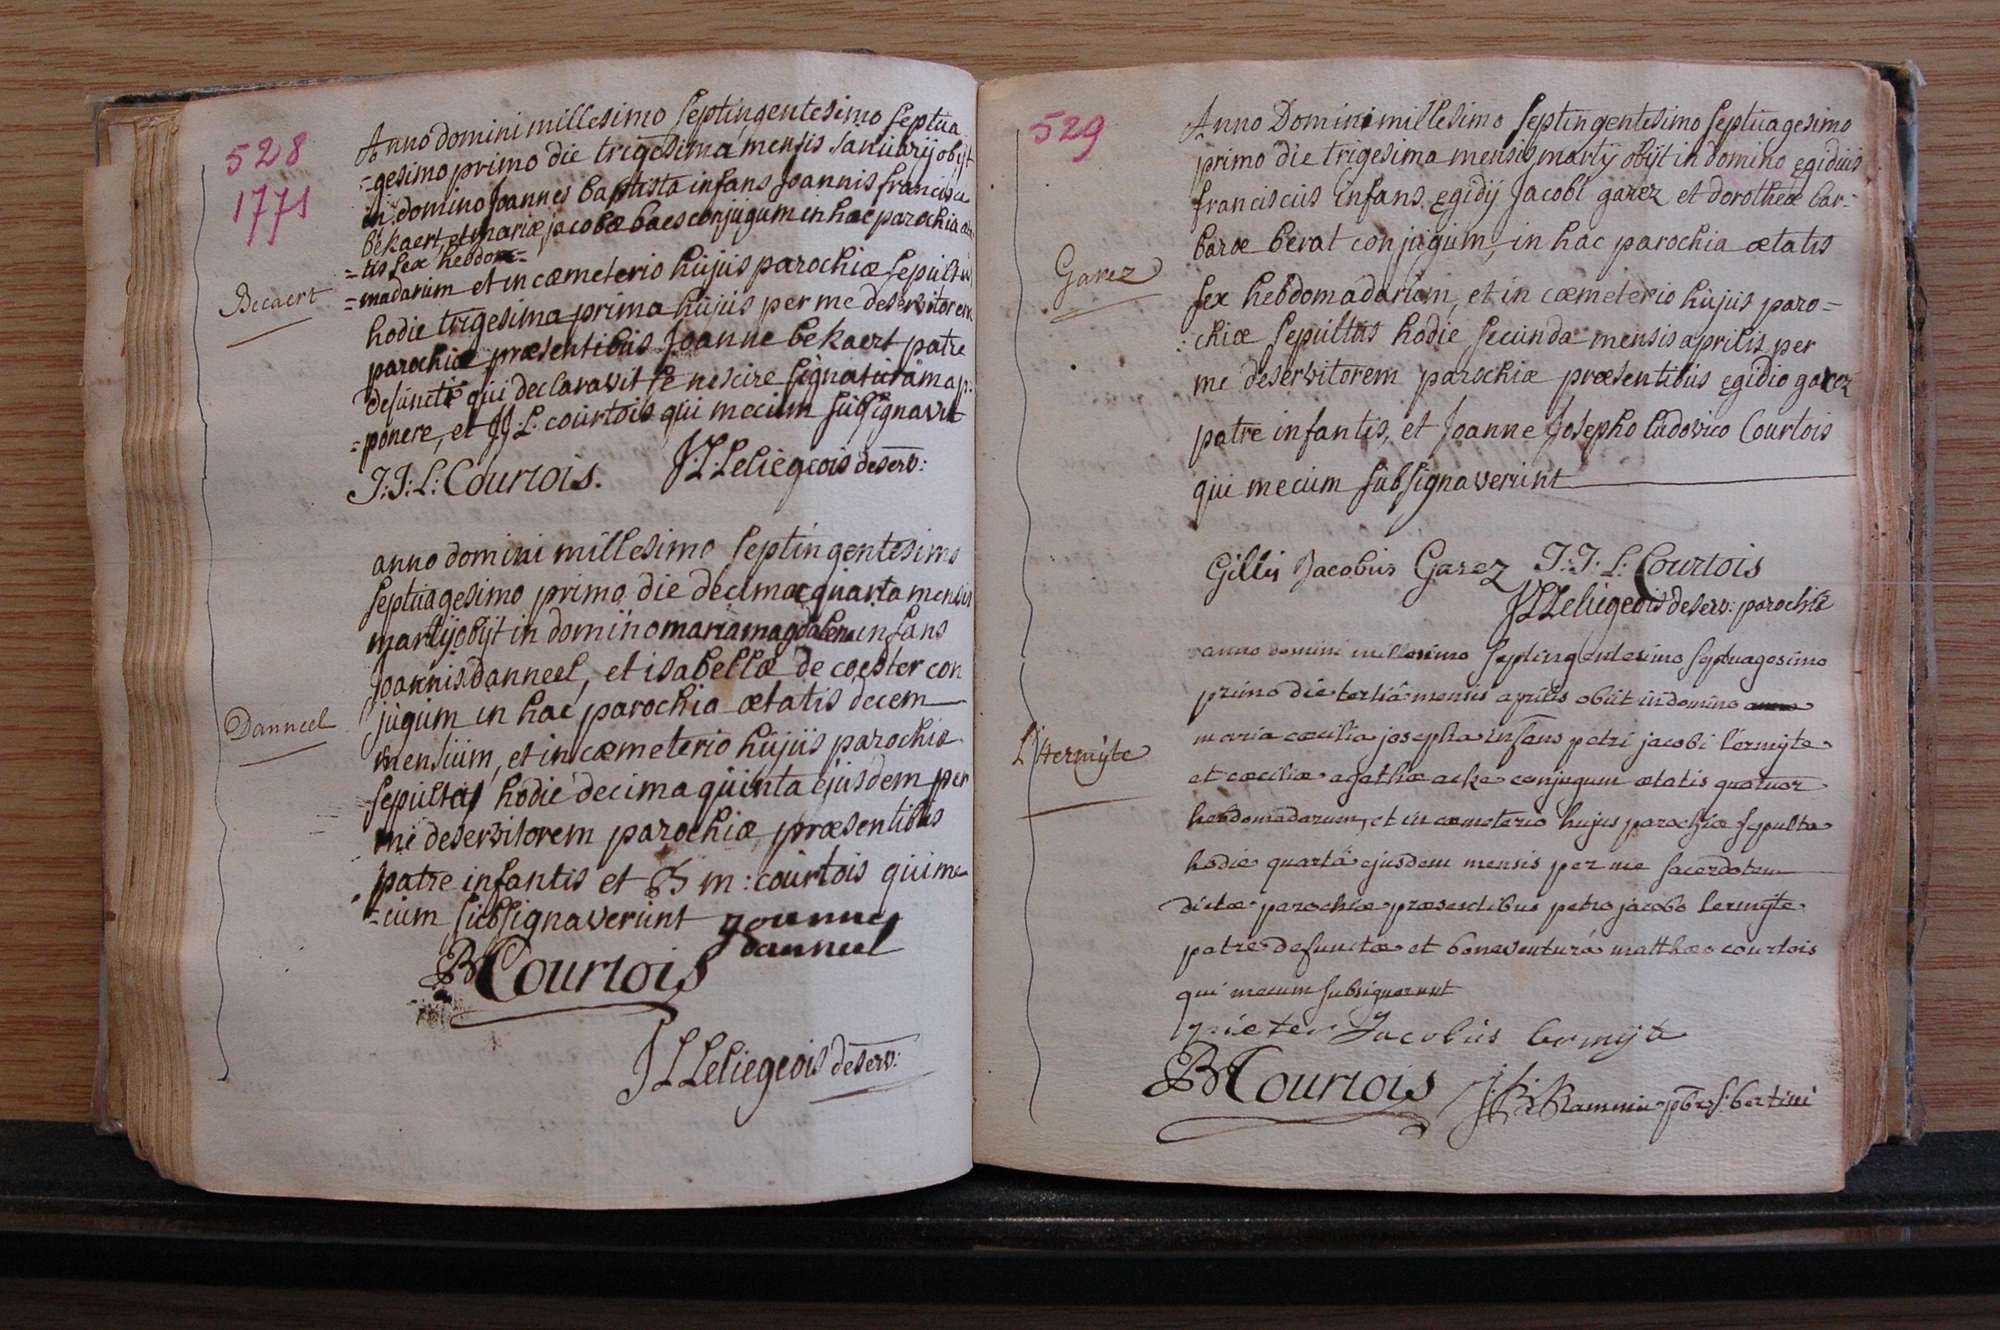 528
1771
Anno domini millesimo septingentesimo septua
=gesimo primo die trigesima mensis Januarij obijt
in domino Joannes baptista infans Joannis francisci
bekaert, et mariæ jacobæ baes conjugum in hac parochia æta
=tis sex hebdom=
=madarum et in cæmeterio hujus parochiæ sepultus
Becaert
hodie trigesima prima hujus per me deservitorem
parochiæ præsentibus Joanne bekaert patre
defuncti qui declaravit se nescire signaturam ap:
=ponere, et J:J:L: courtois qui mecum subsignavit
J:J:L: Courtois. J:L: Leliegeois deserv:
anno domini millesimo septingentesimo
septuagesimo primo die decima quarta mensis
martij obijt in domino maria magdalena infans
joannis danneel, et isabellæ de coester con
jugum in hac parochia ætatis decem
Danneel
mensium, et in cæmeterio hujus parochiæ
sepulta hodie decima quinta ejusdem per
me deservitorem parochiæ, præsentibus
patre infantis et B m: courtois qui me
=cum subsignaverunt joannes
danneel
B Courtois
J L Leliegeois deserv:
529
Anno Domini millesimo septingentesimo septuagesimo
primo die trigesima mensis martij obijt in domino egidius
franciscus infans egidij Jacobi garez et dorotheæ bar=
baræ berat conjugum, in hac parochia ætatis
Garez
sex hebdomadarum, et in cæmeterio hujus paro=
:chiæ sepultus hodie secunda mensis aprilis per
me deservitorem parochiæ præsentibus egidio garez
patre infantis, et Joanne Josepho ludovico Courtois
qui mecum subsignaverunt
Gillis Jacobus Garez J:J:L: Courtois
J L Leliegeois deserv: parochiæ
anno domini millesimo septingentesimo septuagesimo
primo die tertiâ mensis aprilis obiit in domino
maria cæcilia josepha infans petri jacobi l'ermyte
L'Hermÿte
et cæciliæ agathæ acke conjugum ætatis quatuor
hebdomadarum, et in cæmeterio hujus parochiæ sepulta
hodie quartâ ejusdem mensis per me sacerdotem
dictæ parochiæ præsentibus petro jacobo lermÿte
patre defunctæ et bonaventurâ matthæo courtois
qui mecum subsignarunt
pieter Jacobus lermÿte
B Courtois pbr s: bertini